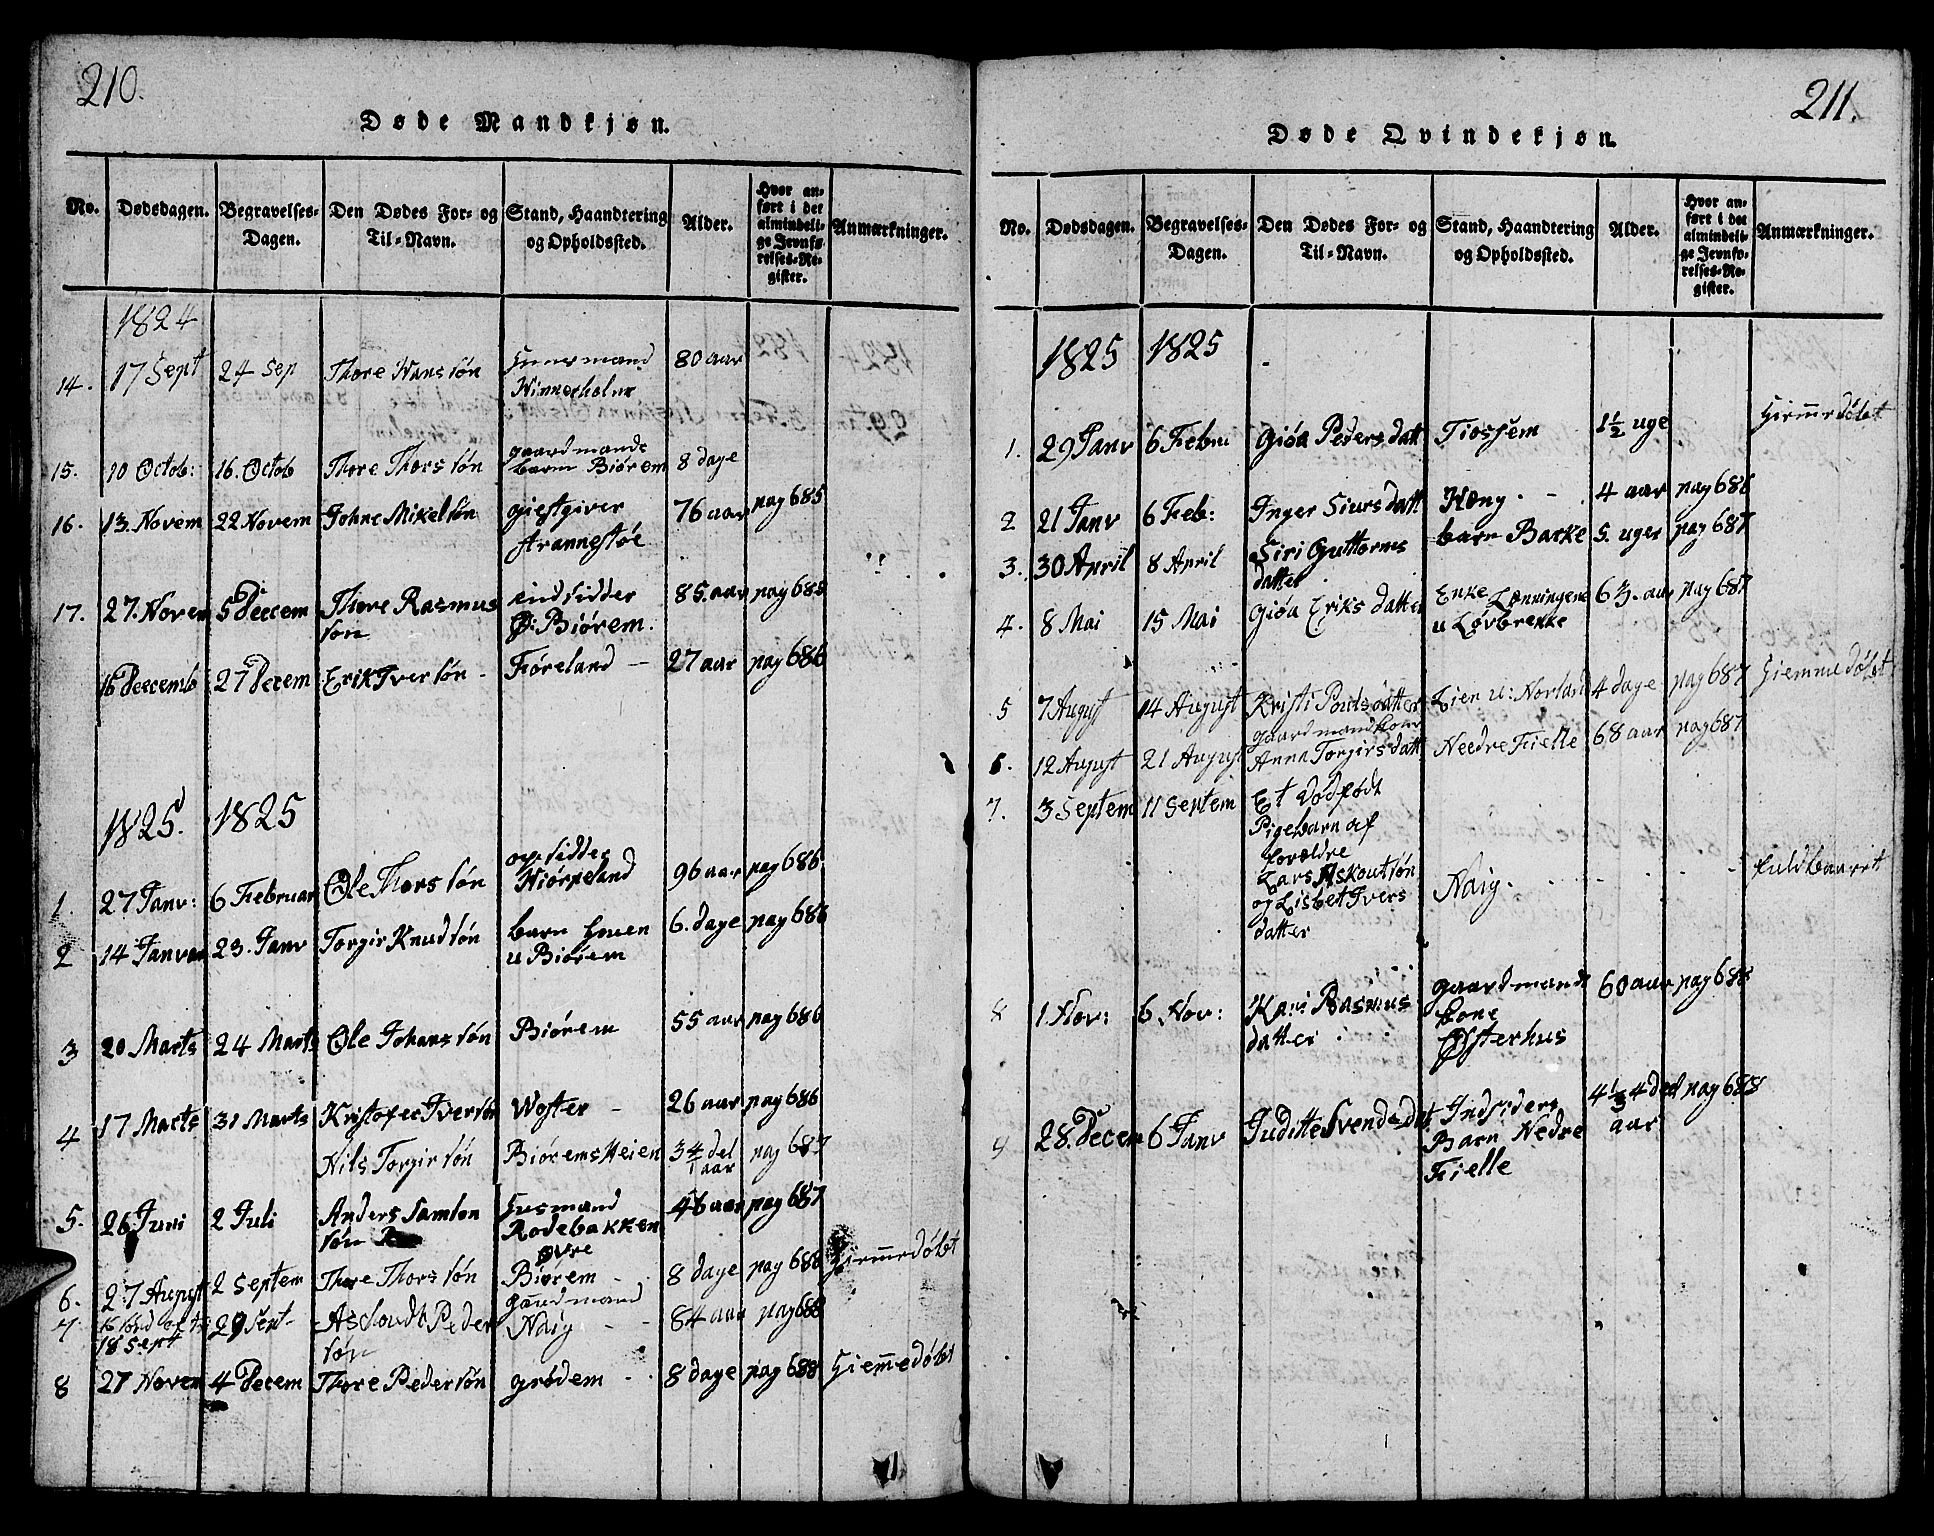 210.
Døde Mandkjøn.
No. Dødsdagen. Begravelses-Dagen. Den Dødes For- og Til-Navn. Stand, Haandtering og Opholdssted. Alder. Hvor anført i det almindelige Jevnførelses-Register. Anmærkninger.
1824
14. 17 Sept 24 Sep Thore Hans søn 80 aar
15. 10 Octob: 16. Octob Thore Thors søn gaardmands barn Biörem 8 dage
16. 13. Novem 22 Novem Johne Mikelsön giestgiver Arannestøe 76 aar pag 685
17. 27. Novem 5 Decem Thore Rasmus søn indsidder Ø: Biörem. 85. aar pag 685
16 Decemb 27 Decem Erik Iversøn - Fiöreland - 27 aar pag 686
1825. 1825
1. 27 Janv: 6 Februar Ole Thors søn opsidder Niörpeland 96 aar pag 686
2 14 Januar 23. Janv Torgir Knudsön barn u Biörem 6. dage pag 686
3 20 Marts 24 Marts Ole Johans sön Biörem 55 aar pag 686
4 17 Marts 31 Marts Kristofer Iversön Woster - 26 aar pag 686
Nils Torgirsön Biörems Heien 3/4 del aar pag 687
5. 26 Juni 2 Juli Anders Samson søn Husmand Rodebakken 46 aar pag 687
6. 27 August 2 Septem Thore Thorssön øvre Biörem - 8 dage pag 688 Hiemedøbt
7 18 Sept 29 Sept - Asloudt Peder søn Gaardmand Naig - - 84 aar pag 688
8 27 Novem 4 Decem Thore Pedersön grødem - - 8 dage pag 688 Hiemedøbt
211.
Døde Qvindekjøn.
No. Dødsdagen. Begravelses-Dagen. Den Dødes For- og Til-Navn. Stand, Haandtering og Opholdssted. Alder. Hvor anført i det almindelige Jevnførelses-Register. Anmærkninger.
1825 1825
1. 29 Janv 6 Febru Giöa Peders datt Tiossem 1½ uge Hiemedøbt
2 21 Janv 6 Feb: Inger Siurs datt Hæng - - 4 aar pag 686
3. 30 April 8 April Siri Guttorms datter barn Barke 5. uger pag 687
4. 8 Mai 15 Mai Giöa Eriks datter Enke Lønningene u Løvbrekke 63. aar pag 687
5 7 August 14 August Kristi Pouls datter Lien u: Norland 4 dage pag 687 Hiemmedøbt
6. 12 August 21 August gaardmandkone Anna Torgirs datt Needre Fielle 68 aar pag 687
7. 3 Septem 11 Septem Et Dødfødt
Pigebarn af
forældre
Lars Askoutsøn
og Lisbet Ivers
datter Naig - - - Fuldbaaret
8 1 Nov: 6 Nov: Kari Rasmus datter gaardmands kone Østerhus 60 aar pag 688
9 28. Decem 6 Janv Juditte Svends dat Indsiders Barn Nedre Fielle aar pag 688